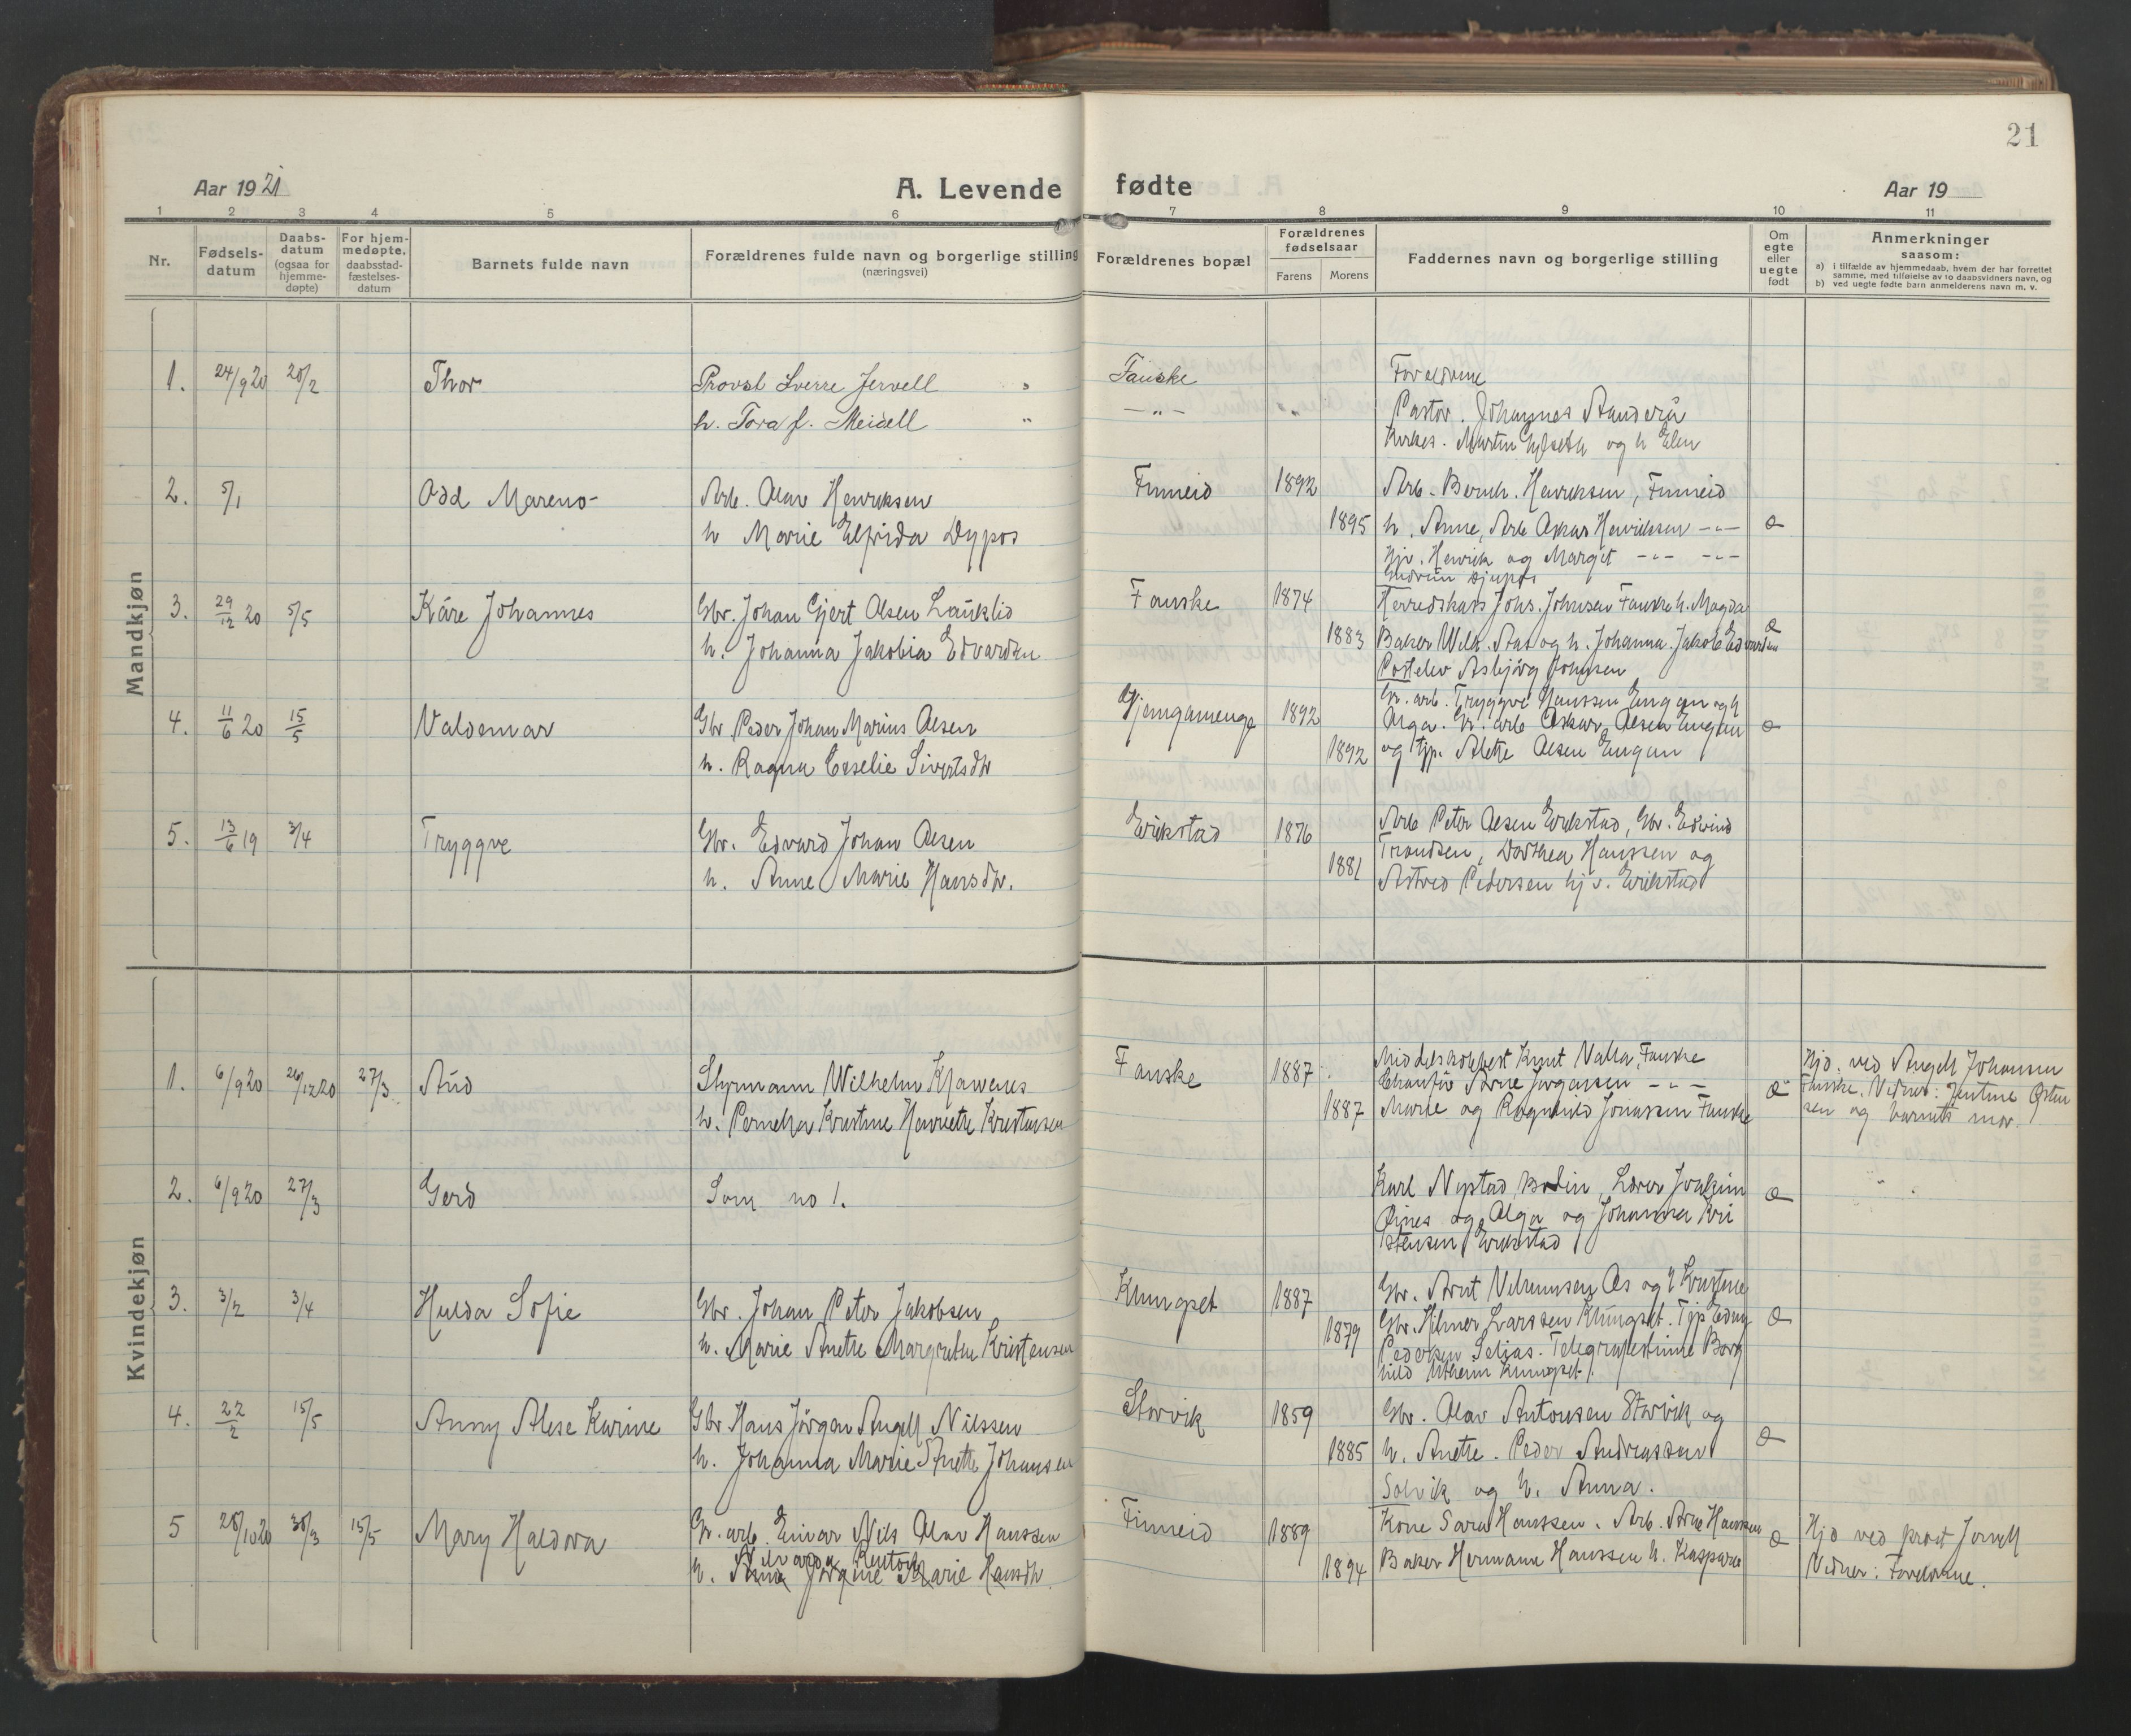 21
Aar 1921
A. Levende fødte
Aar 19
1 2 3 4 5 6 7 8 9 10 11
Nr.
Fødsels-
datum
Daabs-
datum
(ogsaa for
hjemme-
døpte)
For hjem-
medøpte,
daabsstad-
fæstelses-
datum
Barnets fulde navn
Forældrenes fulde navn og borgerlige stilling
(næringsvei)
Forældrenes bopæl
Forældrenes
fødselsaar
Farens
Morens
Faddernes navn og borgerlige stilling
Om
egte
eller
uegte
født
Anmerkninger
saasom:
a) i tilfælde av hjemmedaab, hvem der har forrettet
samme, med tilføielse av to daabsvidners navn, og
b) ved uegte fødte barn anmelderens navn m. v.
Mandkjøn
1. 24/9 20 20/2 Thor Provst Sverre Jervell Fauske Foreldrene
h. Tora f. Meidell -"- Pastor Johannes
Martin og h Elen
2. 5/1 Odd Mareno Arb. Olav Henriksen Finneid 1892 Arb. Bernh. Henriksen, Finneid
h Marie Elfrida Dypos 1895 h. Anne, Arb Oskar Henriksen -"-
Hjv. Henrik og Margit -"- -"-
Gudrun Djupos
3. 29/12 20 5/5 Kåre Johannes Gbr. Johan Gjert Olsen Lauklid Fauske 1874 Herredskass Johs. Johnsen Fauske h. Magda
h. Johanna Jakobia Edvardsen 1883 Baker Wilh. Aas og h. Johanna. Jakob Edvardsen
Postelev Asbjörg Johnsen
4. 11/6 20 15/5 Valdemar Gbr Peder Johan Marius Olsen Gjemgamenge 1892 Gr. arb. Tryggve Hanssen Engan og h
h. Ragna Esselie Sivertsdtr 1892 Olga. Gr. arb Oskar Olsen Engan
og tjp. Alette Olsen Engan
5. 13/6 19 3/4 Tryggve Gbr. Edvard Johan Olsen Erikstad 1876 Arb Peter Olsen Erikstad, Gbr. Edvind
h. Anne Marie Hansdtr. 1881 Trondsen, Dorthea Hanssen og
Astrid Pedersen hjv. Erikstad
Kvindekjøn
1. 6/9 20 26/12 20 27/3 Aud Styrmann Wilhelm Fauske 1887 Knut Valla, Fauske
h. Pernelha Kristine Henriette Kristensen 1887 Chauför Arne Jörgensen -"-
Marie og Ragnhild Jonassen Fauske
Hjd. ved Angell Johansen
Fauske. Vidner: Jentine Osten
sen og barnets mor.
2. 6/9 20 27/3 Gerd Som no 1. Karl Nystad, Bodin, Lærer Joakim
Öines og Olga og Johanna Kri
stensen Erikstad
3. 3/2 3/4 Hulda Sofie Gbr. Johan Peter Jakobsen Klungset 1887 Gbr. Arnt Os og h Kristine
h. Marie Anette Margrethe Kristensen 1879 Gbr. Hilmer Larssen Klungset. Tjp Edny
Pedersen Seljås. Telegrafestinne Borg
hild Klungset.
4. 22/2 15/5 Anny Alese Karine Gbr Hans Jörgen Angell Nilssen Storvik 1859 Gbr. Olav Antonsen Storvik og
h. Johanna Marie Anette Johansen 1885 h. Anette. Peder Andreassen
Solvik og h. Anna.
5 28/10 20 30/3 15/5 Mary Haldora Gr. arb. Einar Nils Olav Hanssen Finneid 1889 Kone Sara Hanssen. Arb. Arne Hanssen
h. Anna Jörgine Marie Hansdtr 1894 Baker Hermann Hanssen h. Kaspara
Hjd ved prost Jervell
Vidner: Foreldrene.